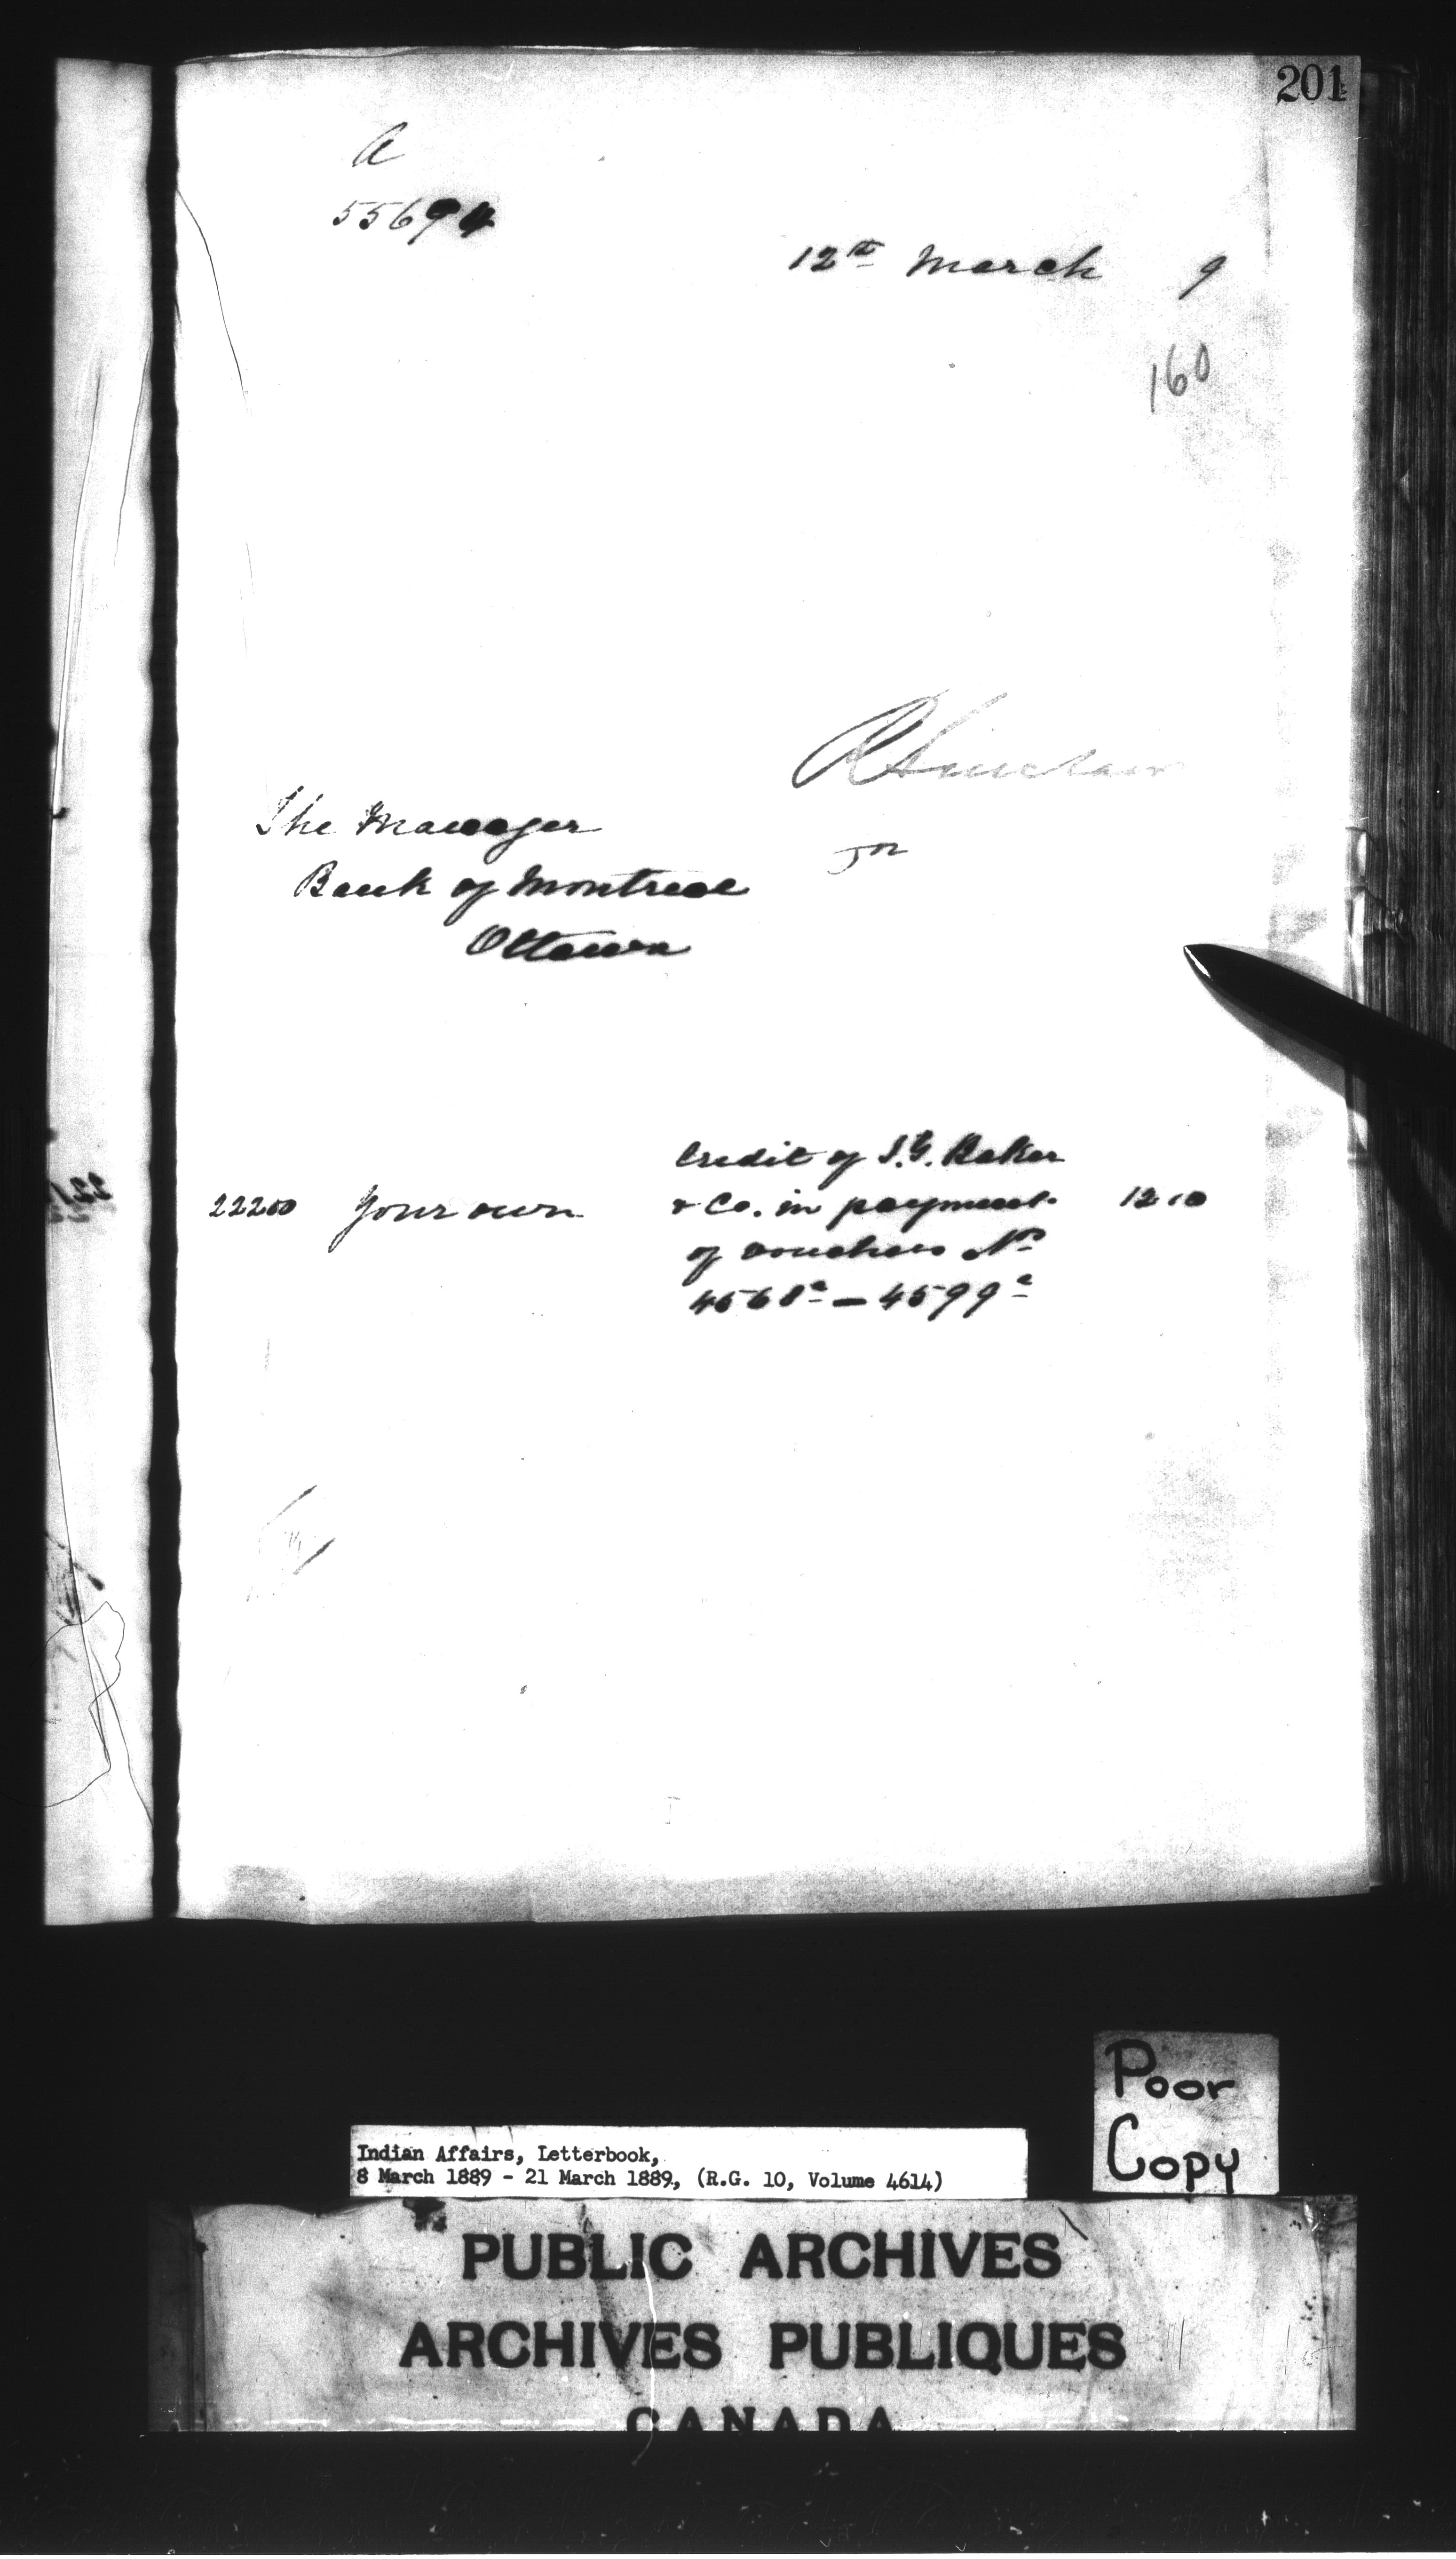 201
A
55694
12th March 9
160
R Sinclair
The Manager
Bank of Montreal
Ottawa
Credit of I. G. Baker
22200 Your own & Co. in payment 12 10
of vouchers No
4568a - 4599a
Poor
Copy
Indian Affairs, Letterbook,
8 March 1889 - 21 March 1889, (R.G. 10, Volume 4614)
PUBLIC ARCHIVES
ARCHIVES PUBLIQUES
CANADA